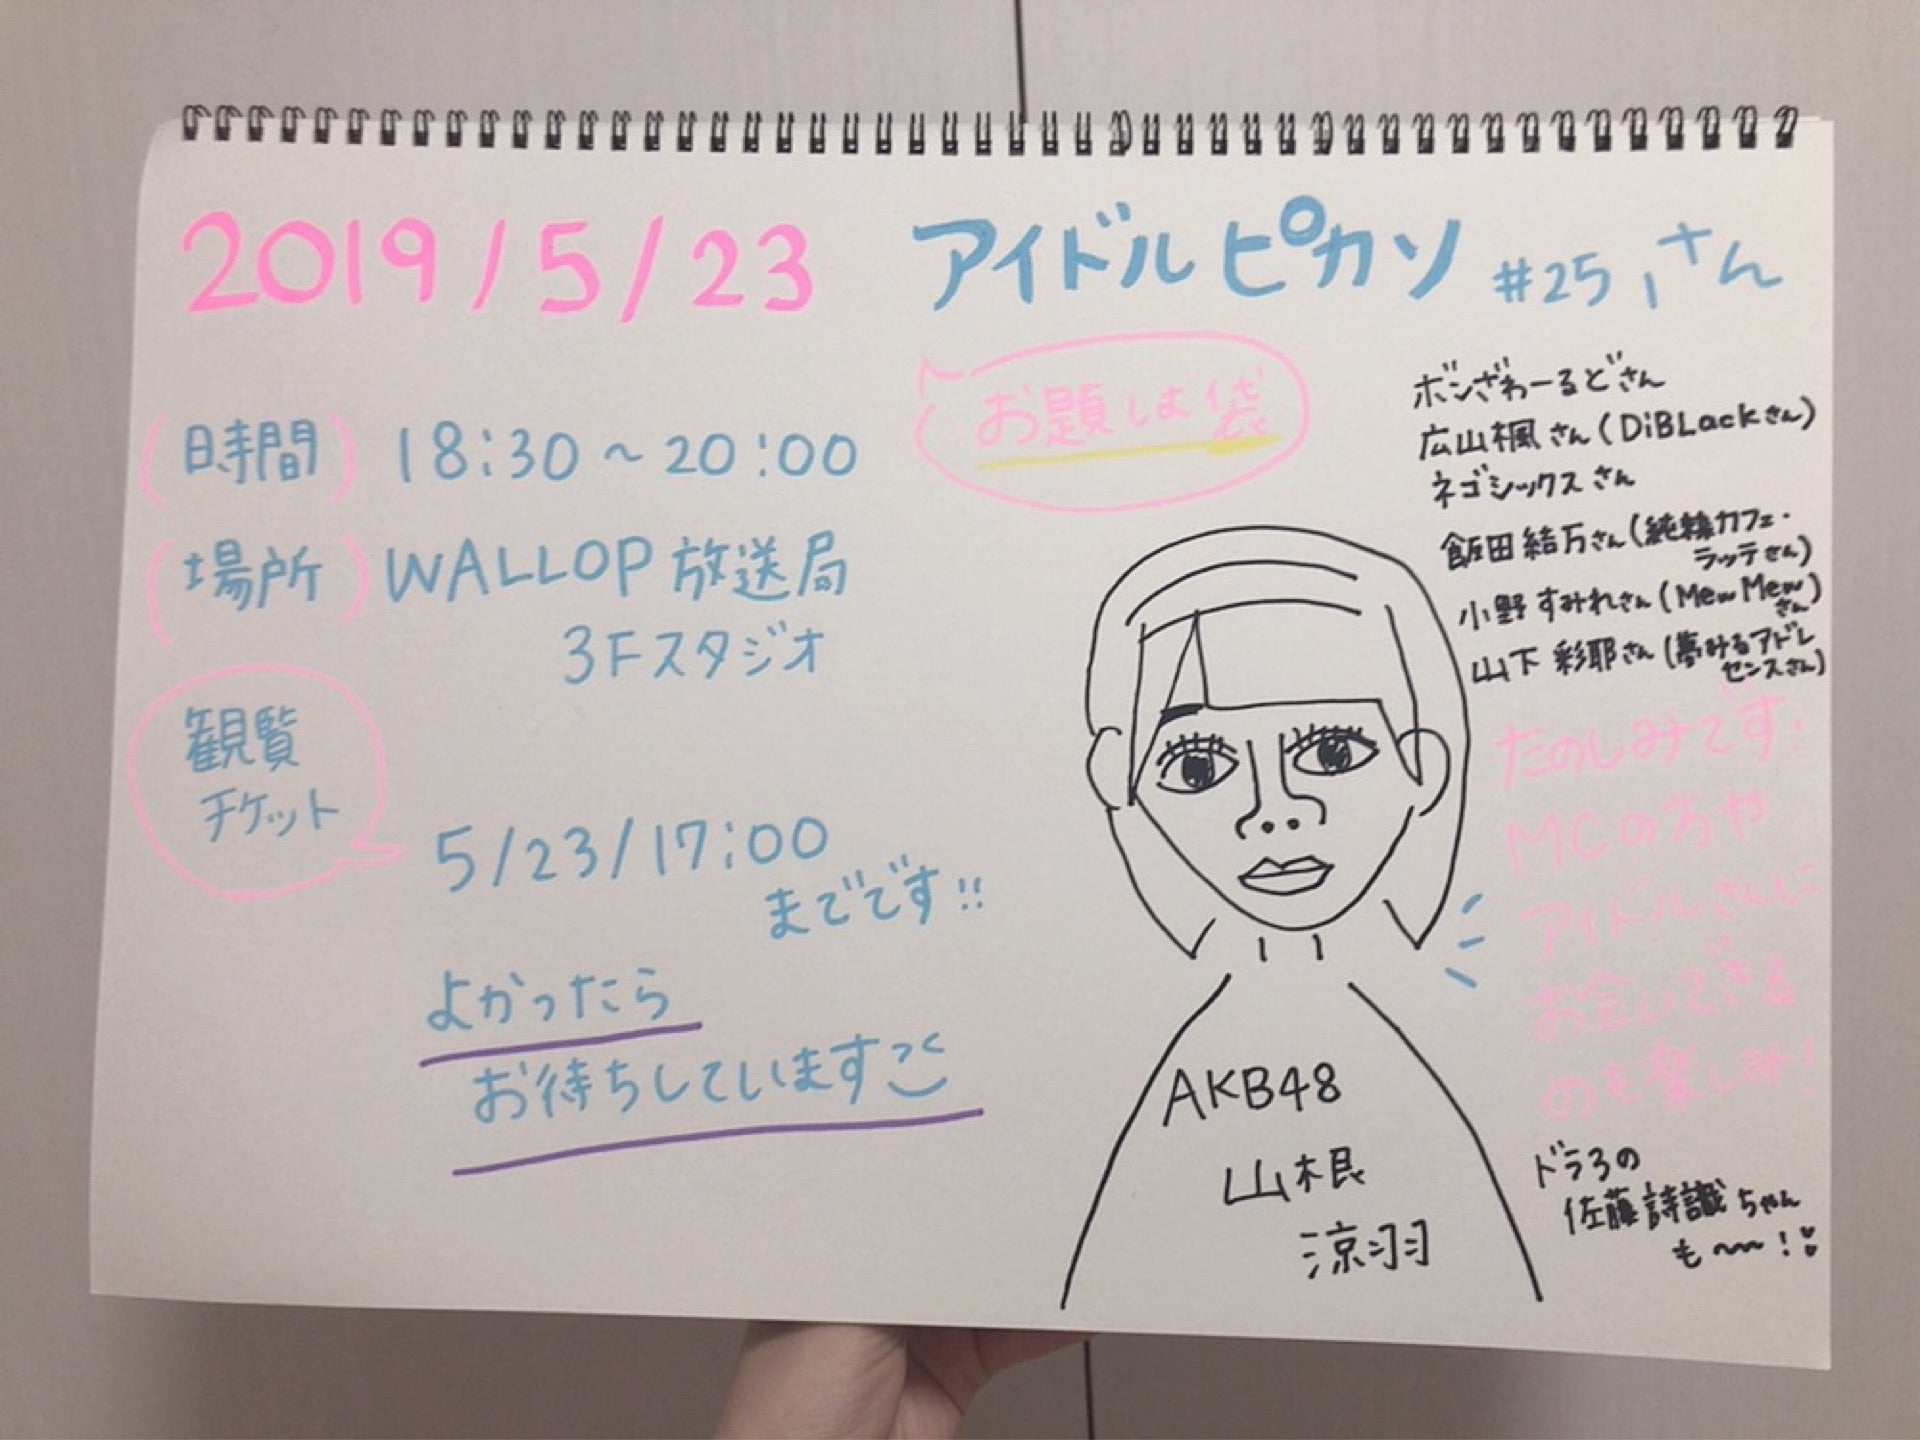 2019/5/23
アイドルピカソ #25 さん
(時間) 18:30～20:00
(場所) WALLOP 放送局
3Fスタジオ
観覧
チケット
5/23/17:00
までです!!
よかったら
お待ちしています
お題は袋
ボンざわーるどさん
広山楓さん(DiBLackさん)
ネゴシックスさん
飯田結万さん(純糸カフェ・
ラッテさん)
小野すみれさん(MewMew
さん)
山下彩耶さん(夢みるアドレ
センスさん)
たのしみです!
MCの方や
アイドルさんに
お会いできる
のも楽しみ!
AKB48
山根
涼羽
ドラ3の
佐藤詩識ちゃん
も〜〜!